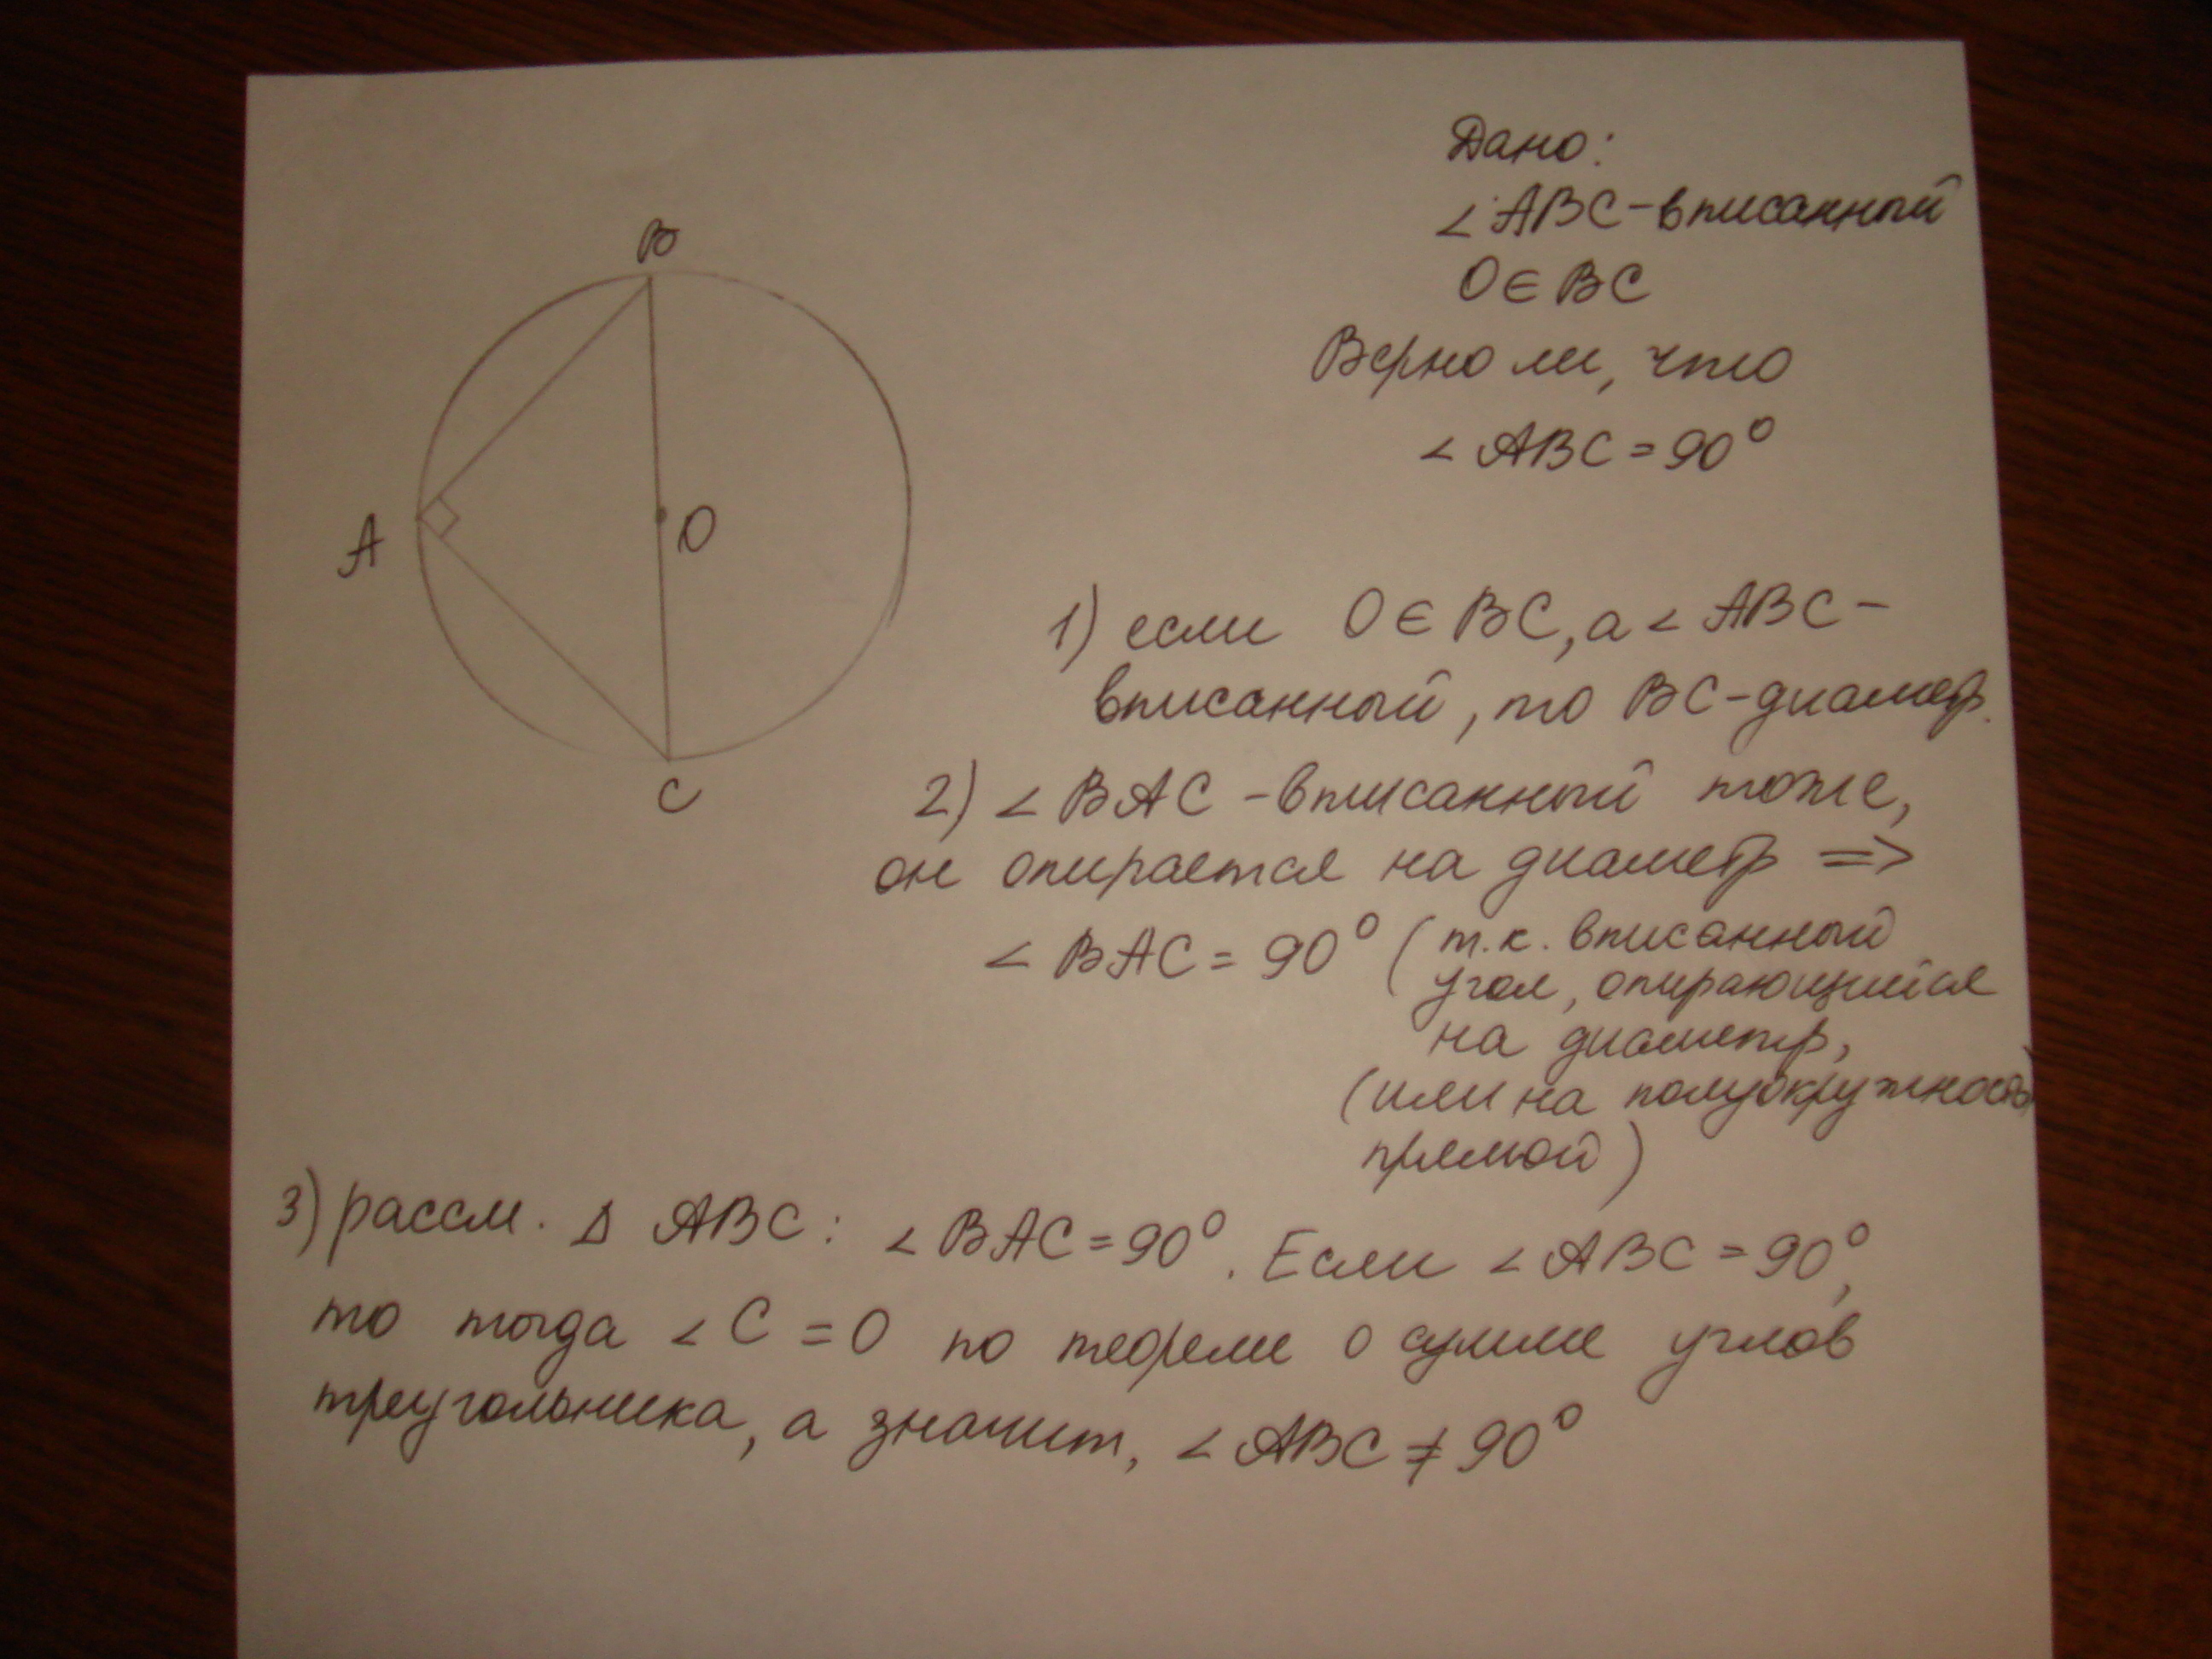 B
A
O
C
Дано:
∠ABC-вписанный
O∈BC
Верно ли, что
∠ABC=90°
1) если O∈BC, а ∠ABC-
вписанный, то BC-диаметр.
2) ∠BAC-вписанный тоже,
он опирается на диаметр =>
∠BAC=90° (т.к. вписанный
угол, опирающийся
на диаметр,
(или на полуокружность)
прямой)
3) рассм. Δ ABC: ∠BAC=90°. Если ∠ABC=90°,
то тогда ∠C=0 по теореме о сумме углов
треугольника, а значит, ∠ABC≠90°